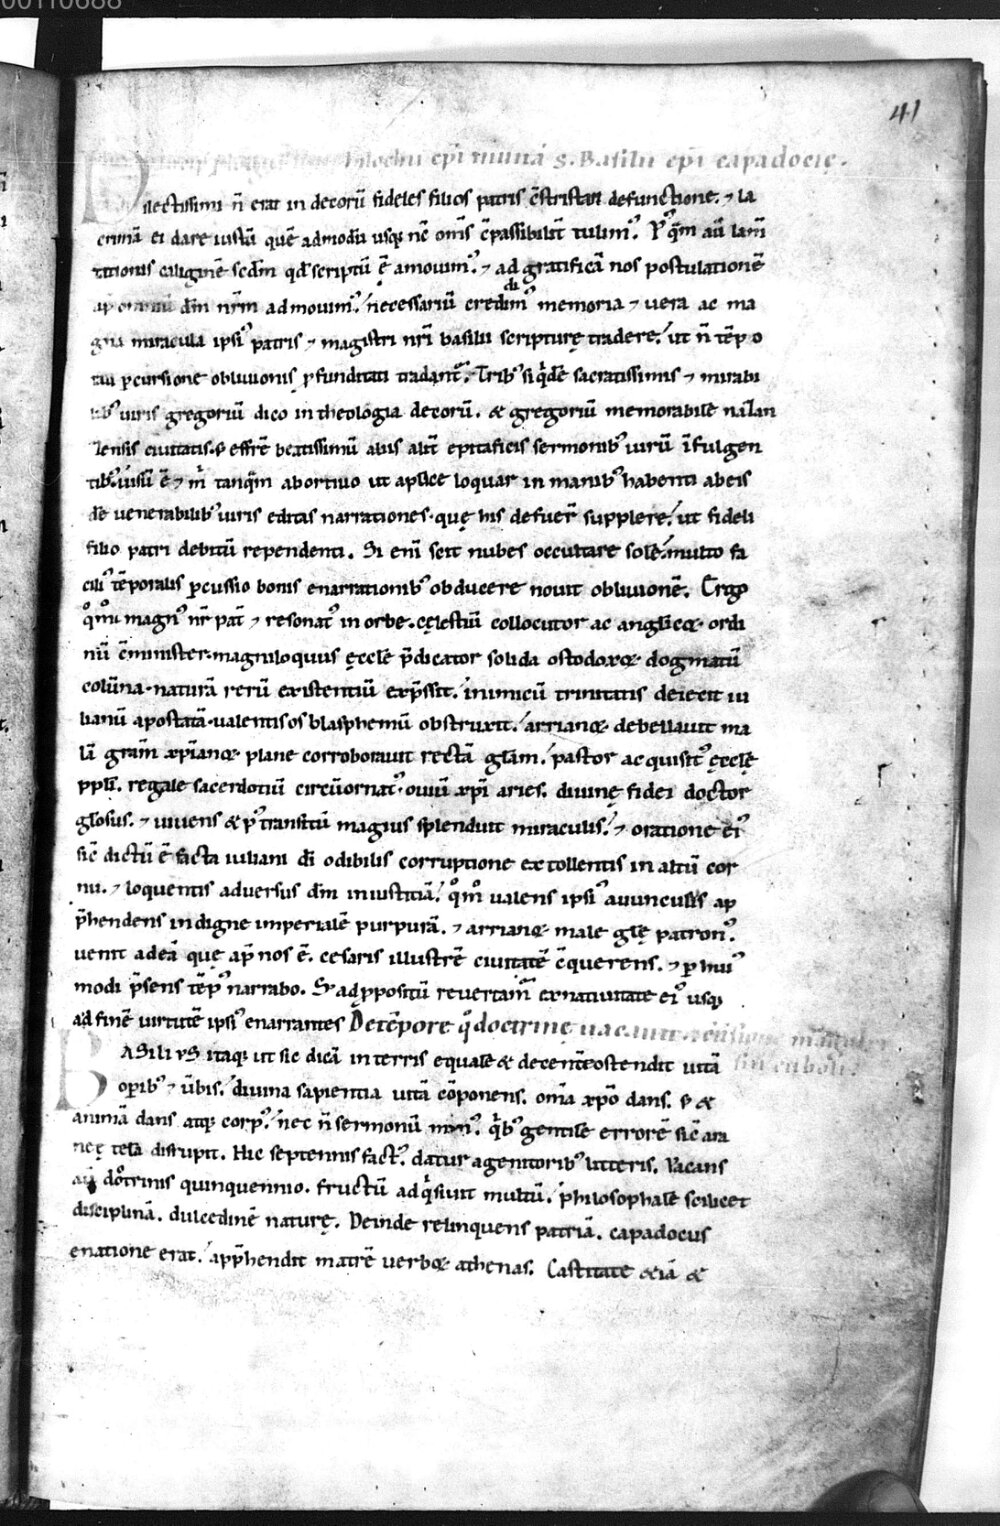 00110688
41
epi muna s. Basilii epi capadocię.
Dilectissimi n̄ erat in decorū fideles filios patris c̄stristari defunctione. ⁊ la
crimā ei dare iustā quē admodū usq; nc̄ om̄s c̄passibilit̄ tulim᾽. P᾽ q̄m aū lam̄
tationis caliginē scdm̄ qd̄ scriptū ē amouim᾽. ⁊ ad gratificā nos postulationē
dm̄ nr̄m admouim᾽. necessariū credidim᾽ memoria ⁊ uera ac ma
gna miracula ipsi᾽ patris ⁊ magistri nr̄i basilii scripturę tradere. ut n̄ tēpo
rali p̄cursione obliuionis p̄funditati tradant᾽. Trib᾽ siq̄dē sacratissimis ⁊ mirabi
lib᾽ uiris gregoriū dico in theologia decorū. & gregoriū memorabilē nazan
zensis ciuitatis. & effrē beatissimū aliis alit̄ epitaficis sermonib᾽ uirū īfulgen
tib᾽. uisū ē ⁊ m̄ tanq̄m abortiuo ut aplice loquar in manib᾽ habenti ab eis
de uenerabilib᾽ uiris editas narrationes. quę his defuer̄ supplere. ut fideli
filio patri debitū rependenti. Si enī scit nubes occultare solē. multo fa
cili᾽ tēporalis p̄cussio bonis enarrationib᾽ obducere nouit obliuionē. Ergo
q̄m magn᾽ nr̄ pat̄ ⁊ resonat᾽ in orbe. cęlestiū collocutor ac anglicoꝝ ordi
nū c̄minister. magniloquus ęcclę p̄dicator solida ostodoxoꝝ dogmatū
colūna. naturā rerū existentiū exp̄ssit. inimicū trinitatis deiecit iu
lianū apostatā. ualentis os blasphemū obstruxit. arrianoꝝ debellauit ma
lā gram̄ xp̄ianoꝝ plane corroborauit rectā glam̄. pastor acquisit᾽ ęcclę
ppli. regale sacerdotiū circūornat᾽. ouiū xp̄i aries. diuinę fidei doctor
glosus. ⁊ uiuens & p᾽ transitū magnis splenduit miraculis. ⁊ oratione ei᾽
sic̄ dictū ē facta iuliani dī odibilis corruptione extollentis in altū cor
nu. ⁊ loquentis aduersus dm̄ iniustitiā. q̄m ualens ipsi᾽ auunculus ap
p̄hendens indigne imperialē purpurā. ⁊ arrianoꝝ male glę patron᾽.
uenit ad eā que ap̄ nos ē. cesaris illustrē ciuitatē c̄querens. ⁊ p̄ hui᾽
modi p̄sens tēp᾽ narrabo. S; ad p̄positū reuertam᾽ ex natiuitate ei᾽ usq;
ad finē uirtutē ipsi᾽ enarrantes De tēpore q̄ doctrinę uacauit.
BASILIUS itaq; ut sic dicā in terris equalē & decentē ostendit uitā
opib᾽ ⁊ ūbis. diuina sapientia uitā cōponens. om̄a xp̄o dans. s; &
animā dans atq; corp᾽. nec n̄ sermonū q̄b᾽ gentilē errorē sic̄ ara
neę telā disrupit. Hic septennis fact᾽. datur a genitorib᾽ litteris. Vacans
aū doctrinis quinquennio. fructū adq̄siuit multū. philosophale scilicet
disciplinā. dulcedinē naturę. Deinde relinquens patriā. capadocus
enatione erat. app̄hendit matrē uerboꝝ athenas. Castitate &iā &